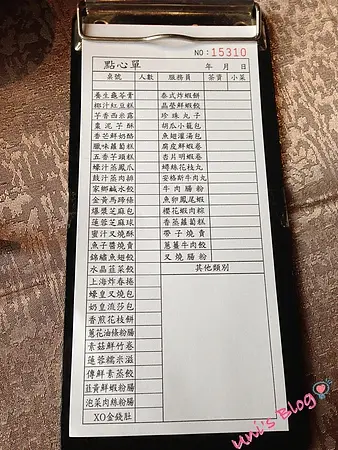 NO:15310
點心單 年 月 日
桌號 人數 服務員 茶資 小菜
養生龜苓膏 泰式炸蝦餅
椰汁紅豆糕 晶瑩鮮蝦餃
芋香西米露 珍珠丸子
棗泥芋酥 胡瓜小籠包
香芒鮮奶酪 魚翅灌湯包
臘味蘿蔔糕 腐皮鮮蝦卷
五香芋頭糕 杏片明蝦卷
蠔汁蒸鳳爪 蟳絲花枝丸
豉汁蒸肉排 安格斯牛肉丸
家鄉鹹水餃 牛肉腸粉
金黃馬蹄條 魚卵鳳尾蝦
爆漿芝麻包 櫻花蝦肉粽
蓮蓉芝麻球 香蒸蘿蔔糕
蜜汁叉燒酥 帶子燒賣
魚子醬燒賣 蔥薑牛肉餃
錦繡魚翅餃 叉燒腸粉
水晶韮菜餃 其他類別
上海炸春捲
蠔皇叉燒包
奶皇流沙包
香煎花枝餅
蔥花油條粉腸
素菇鮮竹卷
蓮蓉糯米滋
傳鮮素蒸餃
韮黃鮮蝦粉腸
泡菜肉絲粉腸
XO金錢肚
Uni's Blog